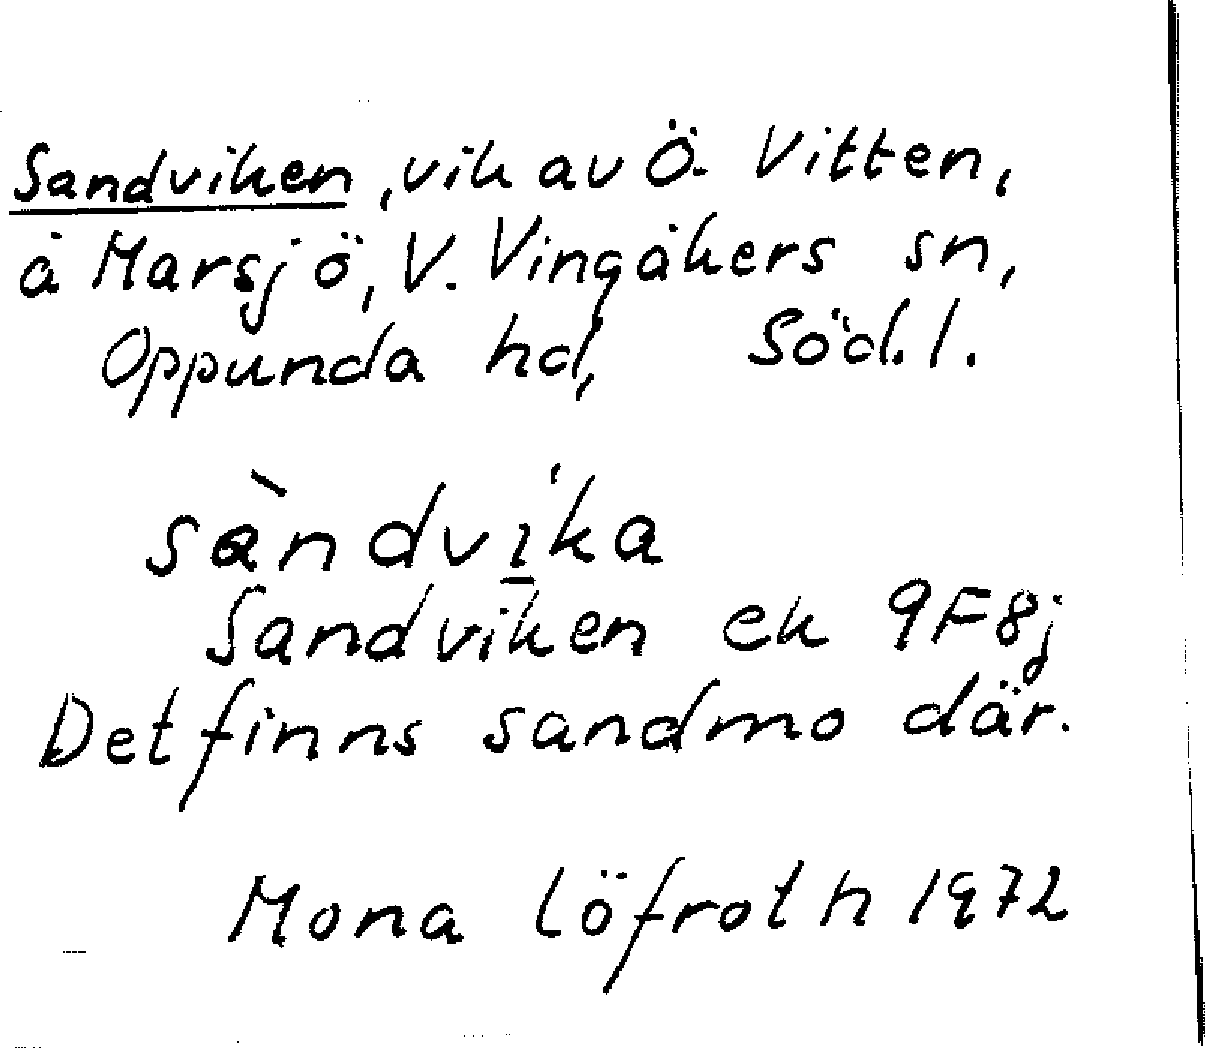 Sandviken, vik av Ö. Vitten,
å Marsjö, V. Vingåkers sn,
Oppunda hd, Söd.l.
sàndvi̱ka
Sandviken ek 9F8j
Det finns sandmo där.
Mona Löfroth 1972